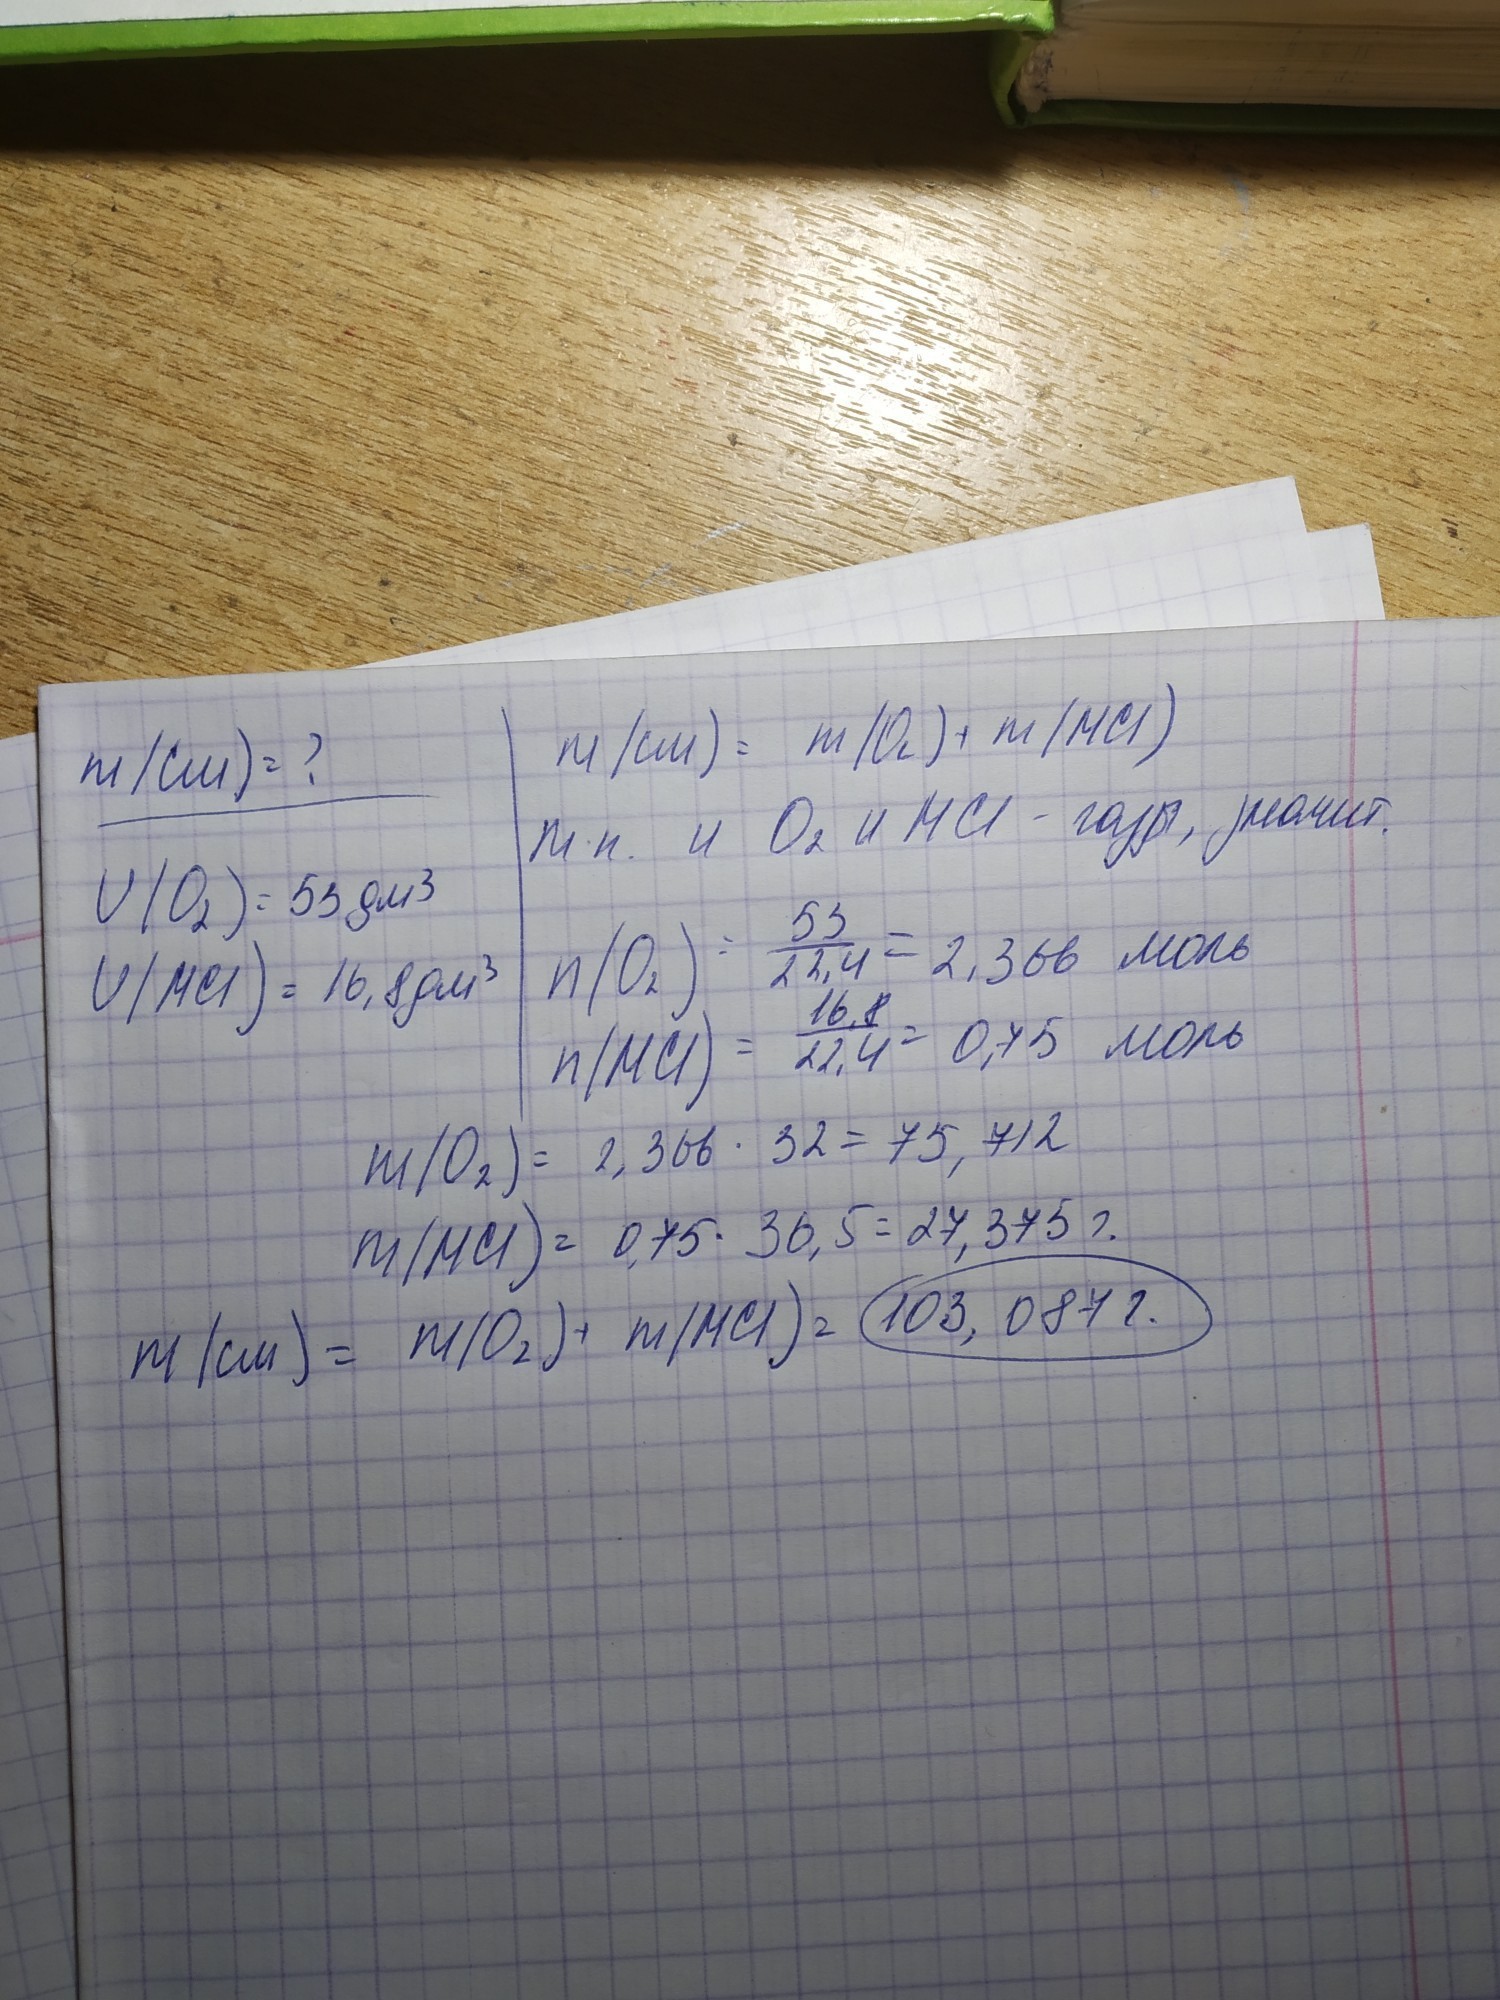 m(см)=?
V(O₂)=53дм³
V(HCl)=16,8дм³
m(см)= m(O₂)+m(HCl)
т.к. и O₂ и HCl - газы, значит.
n(O₂)= 53/22,4 = 2,366 моль
n(HCl)= 16,8/22,4 = 0,75 моль
m(O₂)= 2,366·32=75,712
m(HCl)= 0,75·36,5=27,375г.
m(см)= m(O₂)+m(HCl)= 103,087г.